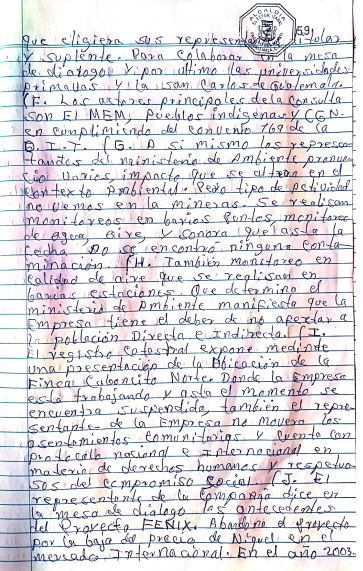 ALCALDIA
69
que eligiera sus representante titular
y suplente. Para Colaborar en la mesa
de dialogo y por ultimo las universidades
primavas y la San Carlos de Guatemala.
(F. Los actores principales de la consulta
son El MEM, Pueblos indigenas y CGN.
en cumplimiendo del convenio 169 de la
O.I.T. (G. A si mismo los represen
tantes del ministerio de Ambiente pronun
cio varios, impacto que se altera en el
contexto Ambiental. Pero tipo de actividad
no vemos en la mineras. Se realisan
monitoreos en barios puntos, monitoreo
de agua, aire, y sonora que asta la
fecha no se encontro ninguna conta-
minación. (H. También monitoreo en
calidad de aire que se realisan en
barias estaciones. Que determino el
ministerio de Ambiente manifiesta que la
Empresa tiene el deber de no afectar a
la población Directa e Indirecta. (I.
El registro catastral expone mediante
una presentación de la Obicación de la
Finca Caboncito Norte. Donde la Empresa
está trabajando y asta el momento se
encuentra suspendida, también el repre-
sentante de la Empresa no movera los
asentamientos comunitarias y cuenta con
protocolo nacional e Internacional en
materia de derechos humanos y respetuo
sos del compromiso social. (J. El
representante de la compañia dice en
la mesa de dialogo los antecedentes
del Proyecto FENIX. Abandono el proyecto
por la baja del precio de Niquel en el
mercado Internacional. En el año 2003.